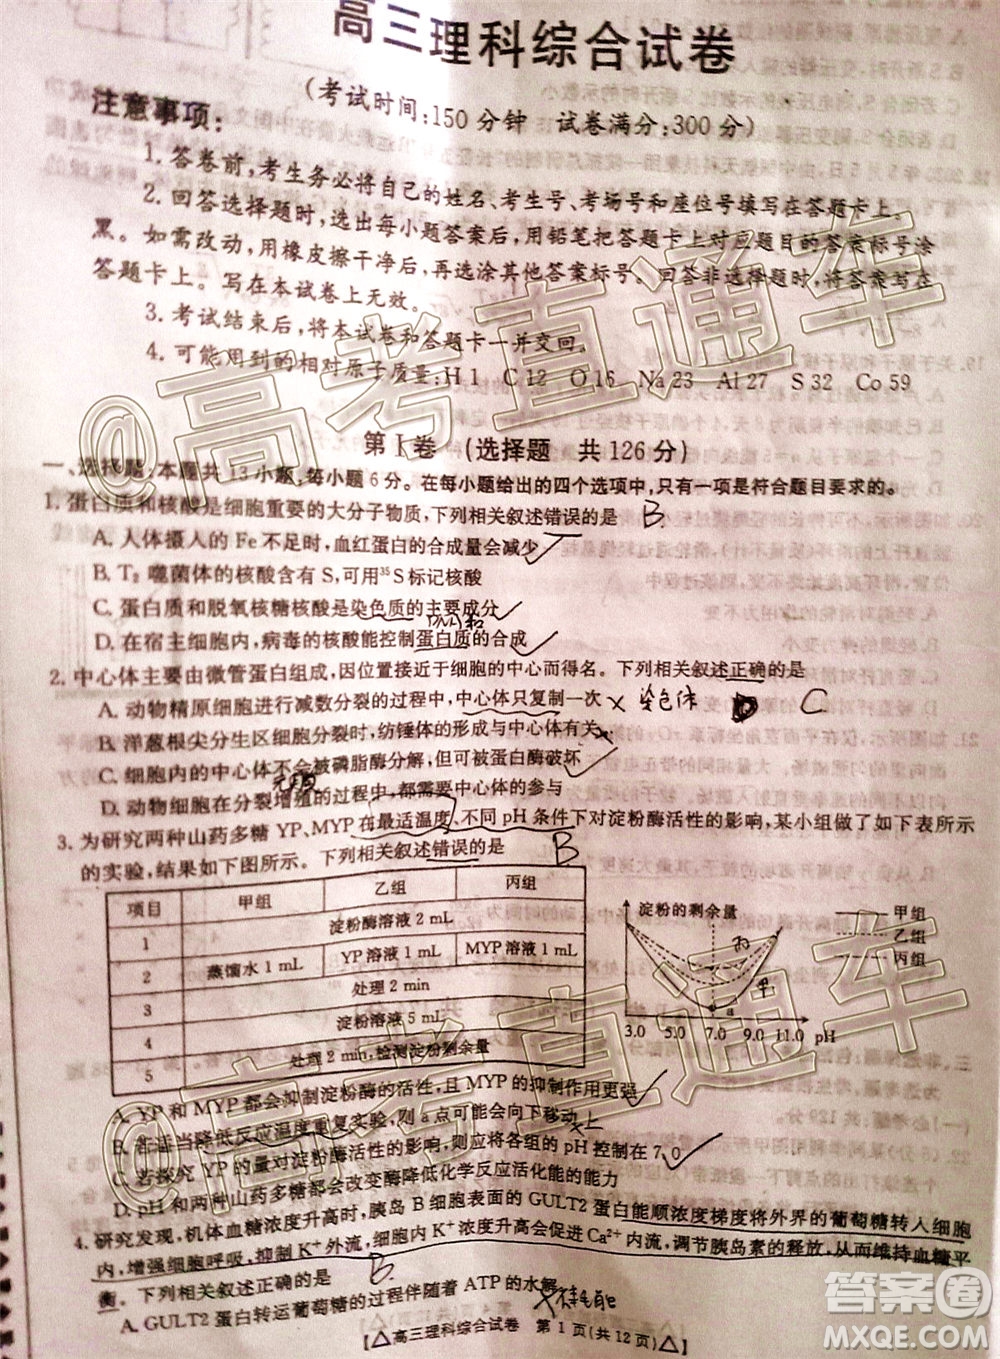 高三理科综合试卷
(考试时间:150分钟 试卷满分:300分)
注意事项:
1. 答卷前,考生务必将自己的姓名、考生号、考场号和座位号填写在答题卡上。
2. 回答选择题时,选出每小题答案后,用铅笔把答题卡上对应题目的答案标号涂
黑。如需改动,用橡皮擦干净后,再选涂其他答案标号。回答非选择题时,将答案写在
答题卡上。写在本试卷上无效。
3. 考试结束后,将本试卷和答题卡一并交回。
4. 可能用到的相对原子质量:H 1 C 12 O 16 Na 23 Al 27 S 32 Co 59
@高考直通车
第Ⅰ卷 (选择题 共126分)
一、选择题:本题共13小题,每小题6分。在每小题给出的四个选项中,只有一项是符合题目要求的。
1. 蛋白质和核酸是细胞重要的大分子物质,下列相关叙述错误的是 B
A. 人体摄入的 Fe 不足时,血红蛋白的合成量会减少
B. T₂ 噬菌体的核酸含有 S,可用³⁵S标记核酸
C. 蛋白质和脱氧核糖核酸是染色质的主要成分
D. 在宿主细胞内,病毒的核酸能控制蛋白质的合成
2. 中心体主要由微管蛋白组成,因位置接近于细胞的中心而得名。下列相关叙述正确的是
A. 动物精原细胞进行减数分裂的过程中,中心体只复制一次 × 染色体 C
B. 洋葱根尖分生区细胞分裂期,纺锤体的形成与中心体有关
C. 细胞内的中心体不会被磷脂酶分解,但可被蛋白酶破坏
D. 动物细胞在分裂增殖的过程中,都需要中心体的参与
3. 为研究两种山药多糖 YP、MYP 在最适温度、不同 pH 条件下对淀粉酶活性的影响,某小组做了如下表所示
的实验,结果如下图所示。下列相关叙述错误的是 B
项目 甲组 乙组 丙组
1 淀粉酶溶液 2 mL
2 蒸馏水 1 mL YP 溶液 1 mL MYP 溶液 1 mL
3 处理 2 min
4 淀粉溶液 5 mL
5 处理 2 min,检测淀粉剩余量
淀粉的剩余量
甲组
乙组
丙组
丙
甲
a
3.0 5.0 7.0 9.0 11.0 pH
@高考直通车
A. YP 和 MYP 都会抑制淀粉酶的活性,且 MYP 的抑制作用更强
B. 若适当降低反应温度重复实验,则 a 点可能会向下移动 上
C. 若探究 YP 的量对淀粉酶活性的影响,则应将各组的 pH 控制在 7.0
D. pH 和两种山药多糖都会改变酶降低化学反应活化能的能力
4. 研究发现,机体血糖浓度升高时,胰岛 B 细胞表面的 GULT2 蛋白能顺浓度梯度将外界的葡萄糖转入细胞
内,增强细胞呼吸,抑制 K⁺ 外流,细胞内 K⁺ 浓度升高会促进 Ca²⁺ 内流,调节胰岛素的释放,从而维持血糖平
衡。下列相关叙述正确的是 B
A. GULT2 蛋白转运葡萄糖的过程伴随着 ATP 的水解
【△高三理科综合试卷 第 1 页(共 12 页)△】
答案圈
MXQE.COM